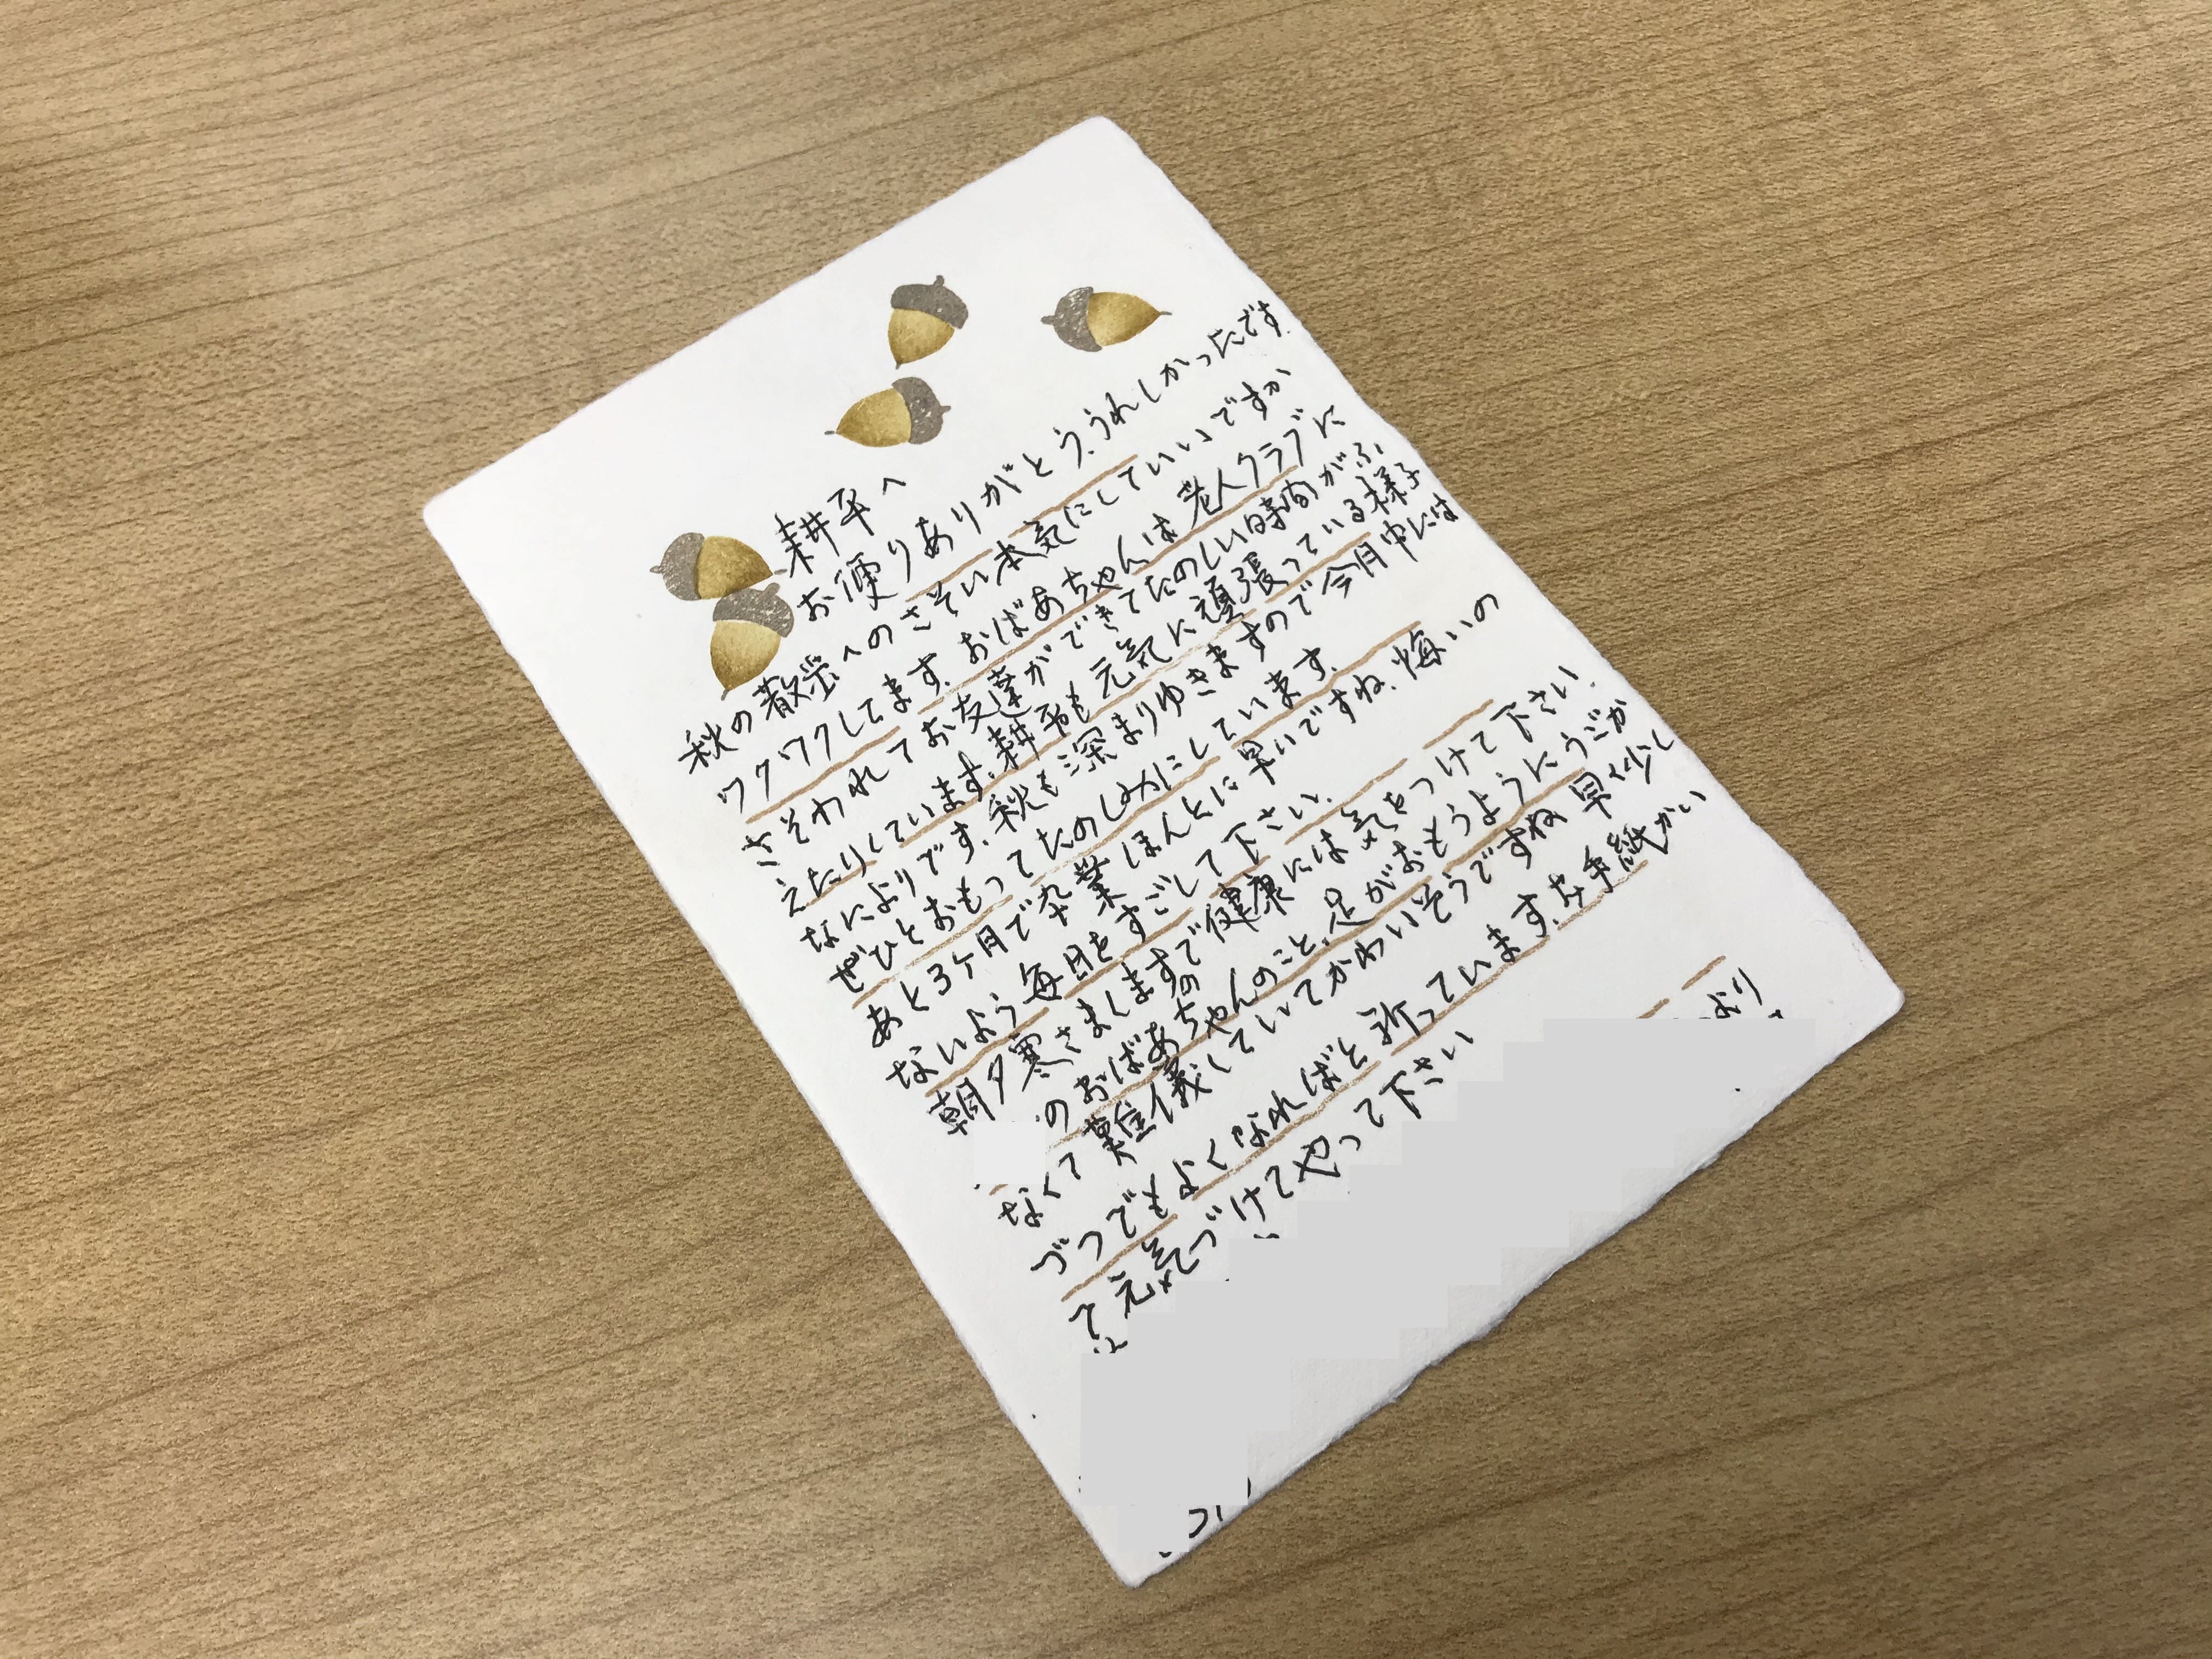 耕平へ
お便りありがとう、うれしかったです。
秋の散歩へのさそい本気にしていいですか
ワクワクしてます。おばあちゃんは老人クラブに
さそわれてお友達ができてたのしい時間がふ
えたりしています。耕平も元気に頑張っている様子
なによりです。秋も深まりゆきますので今月中には
ぜひとおもってたのしみにしています。
あと3ヶ月で卒業ほんとに早いですね。悔いの
ないよう毎日をすごして下さい。
朝夕寒さましますので健康には気をつけて下さい。
のおばあちゃんのこと、足がおもうようにうごか
なくて難儀していてかわいそうですね 早やく少し
づつでもよくなればと祈っています。お手紙かい
て元気づけてやって下さい
より